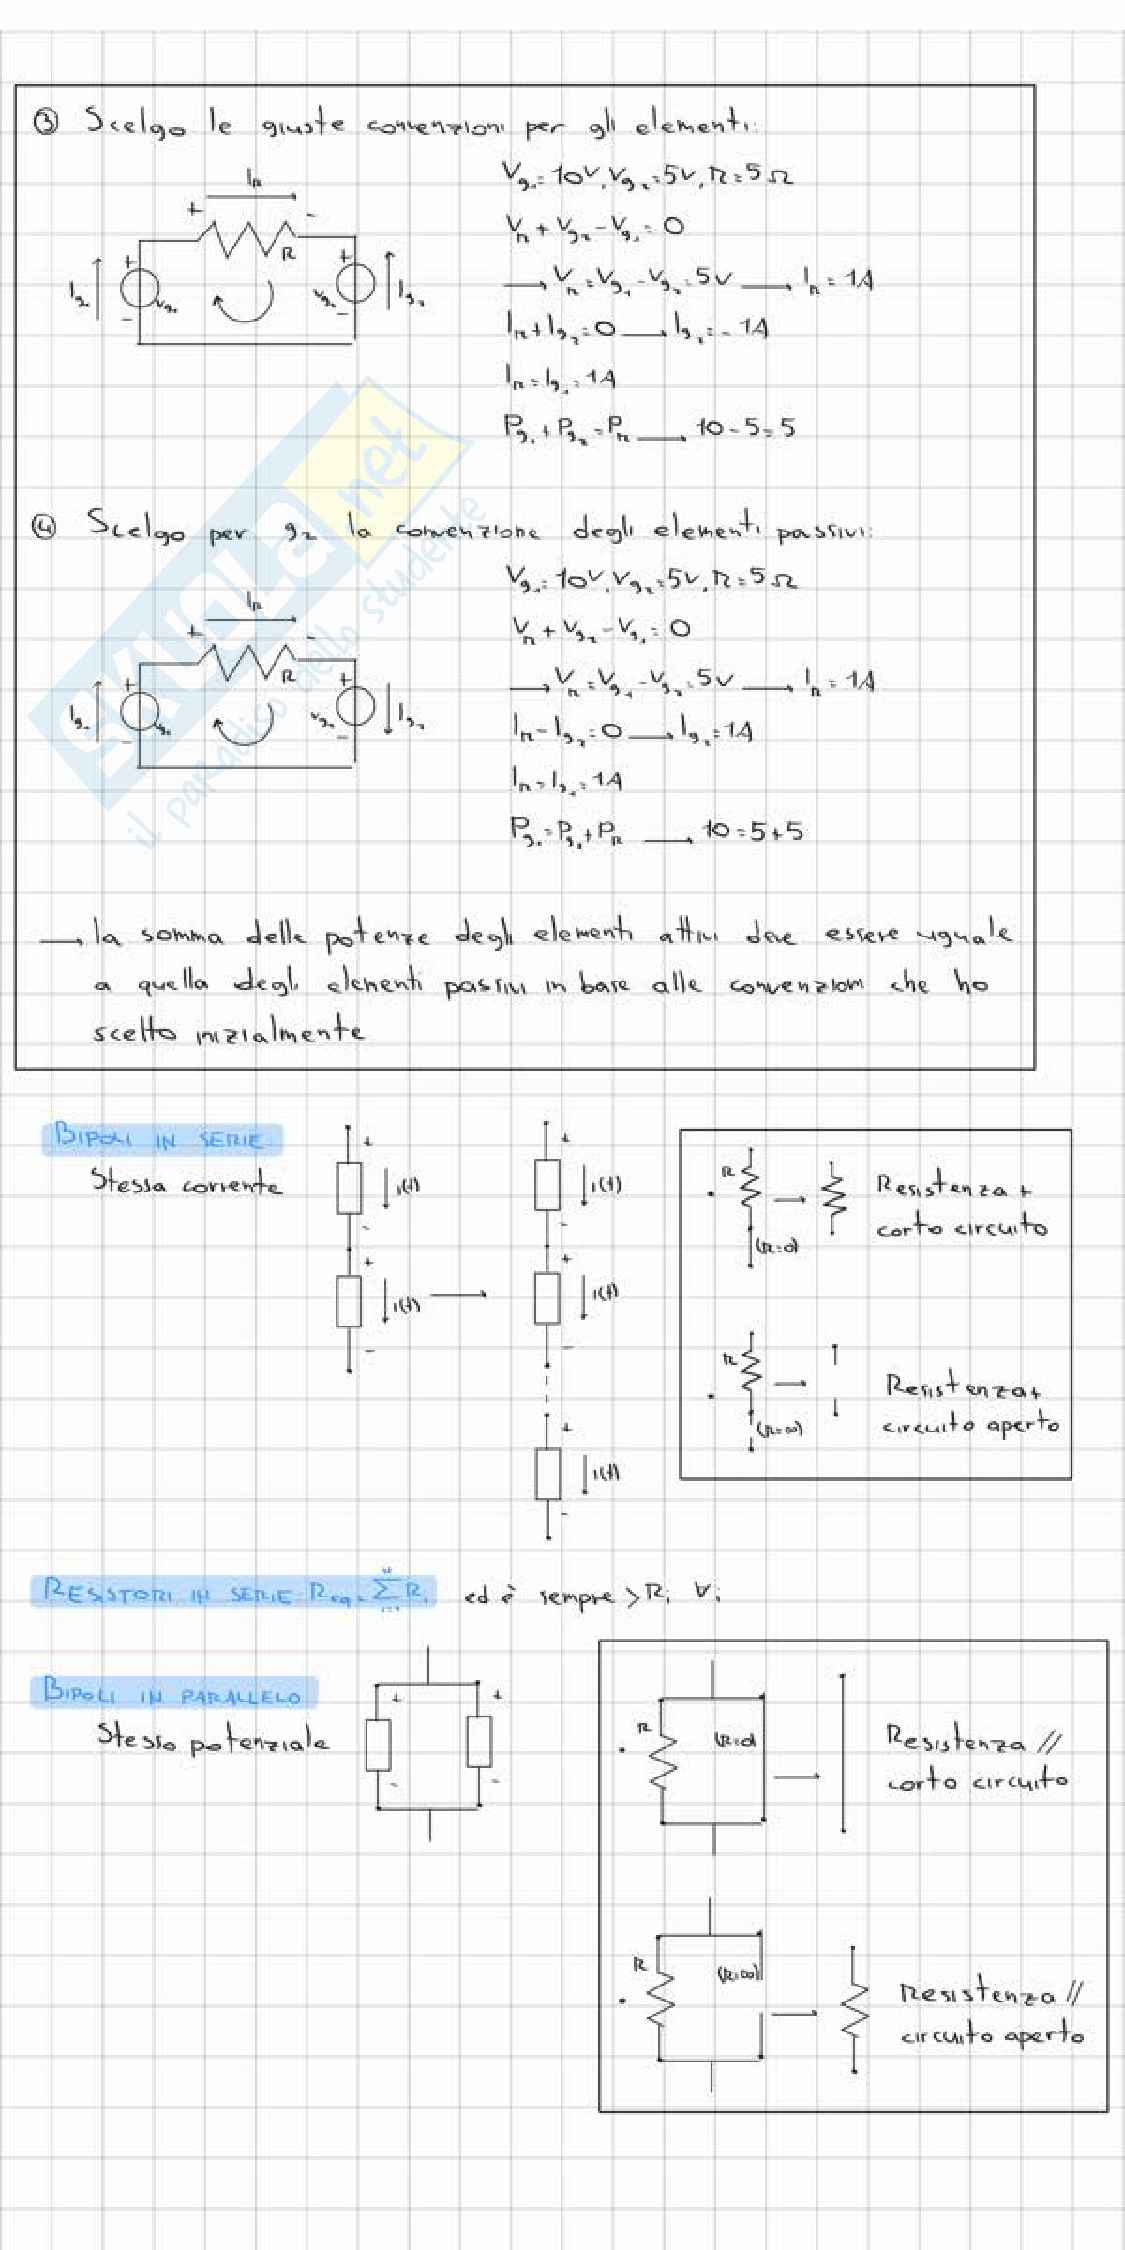 ③ Scelgo le giuste convenzioni per gli elementi:
Vg₁ = 10V, Vg₂ = 5V, R = 5Ω
VR + Vg₂ - Vg₁ = 0
→ VR = Vg₁ - Vg₂ = 5V → IR = 1A
IR + Ig₂ = 0 → Ig₂ = -1A
IR = Ig₁ = 1A
Pg₁ + Pg₂ = PR → 10 - 5 = 5
IR
+ -
R
Ig₁ + Vg₁ -
Vg₂ + - Ig₂
④ Scelgo per g₂ la convenzione degli elementi passivi:
Vg₁ = 10V, Vg₂ = 5V, R = 5Ω
VR + Vg₂ - Vg₁ = 0
→ VR = Vg₁ - Vg₂ = 5V → IR = 1A
IR - Ig₂ = 0 → Ig₂ = 1A
IR = Ig₁ = 1A
Pg₁ = Pg₂ + PR → 10 = 5 + 5
IR
+ -
R
Ig₁ + Vg₁ -
Vg₂ + - Ig₂
SKUOLA.net
il paradiso dello studente
→ la somma delle potenze degli elementi attivi deve essere uguale
a quella degli elementi passivi in base alle convenzioni che ho
scelto inizialmente
BIPOLI IN SERIE
Stessa corrente
+ i(t) -
+ i(t) -
+ i(t) -
+ i(t) -
+ i(t) -
R → Resistenza +
corto circuito
(R=0)
R → Resistenza +
circuito aperto
(R=∞)
RESISTORI IN SERIE: Req = Σ Ri ed è sempre > Ri ∀i
BIPOLI IN PARALLELO
Stesso potenziale
+ +
- -
R (R=0) → Resistenza //
corto circuito
R (R=∞) → Resistenza //
circuito aperto